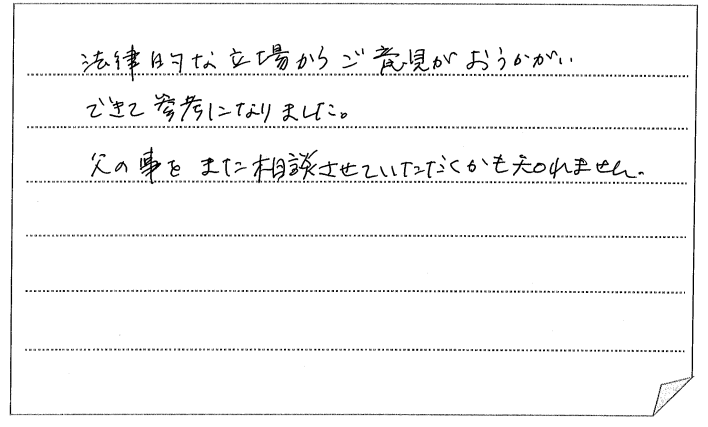 法律的な立場からご意見がおうかがい
できて参考になりました。
父の事をまた相談させていただくかも知れません。